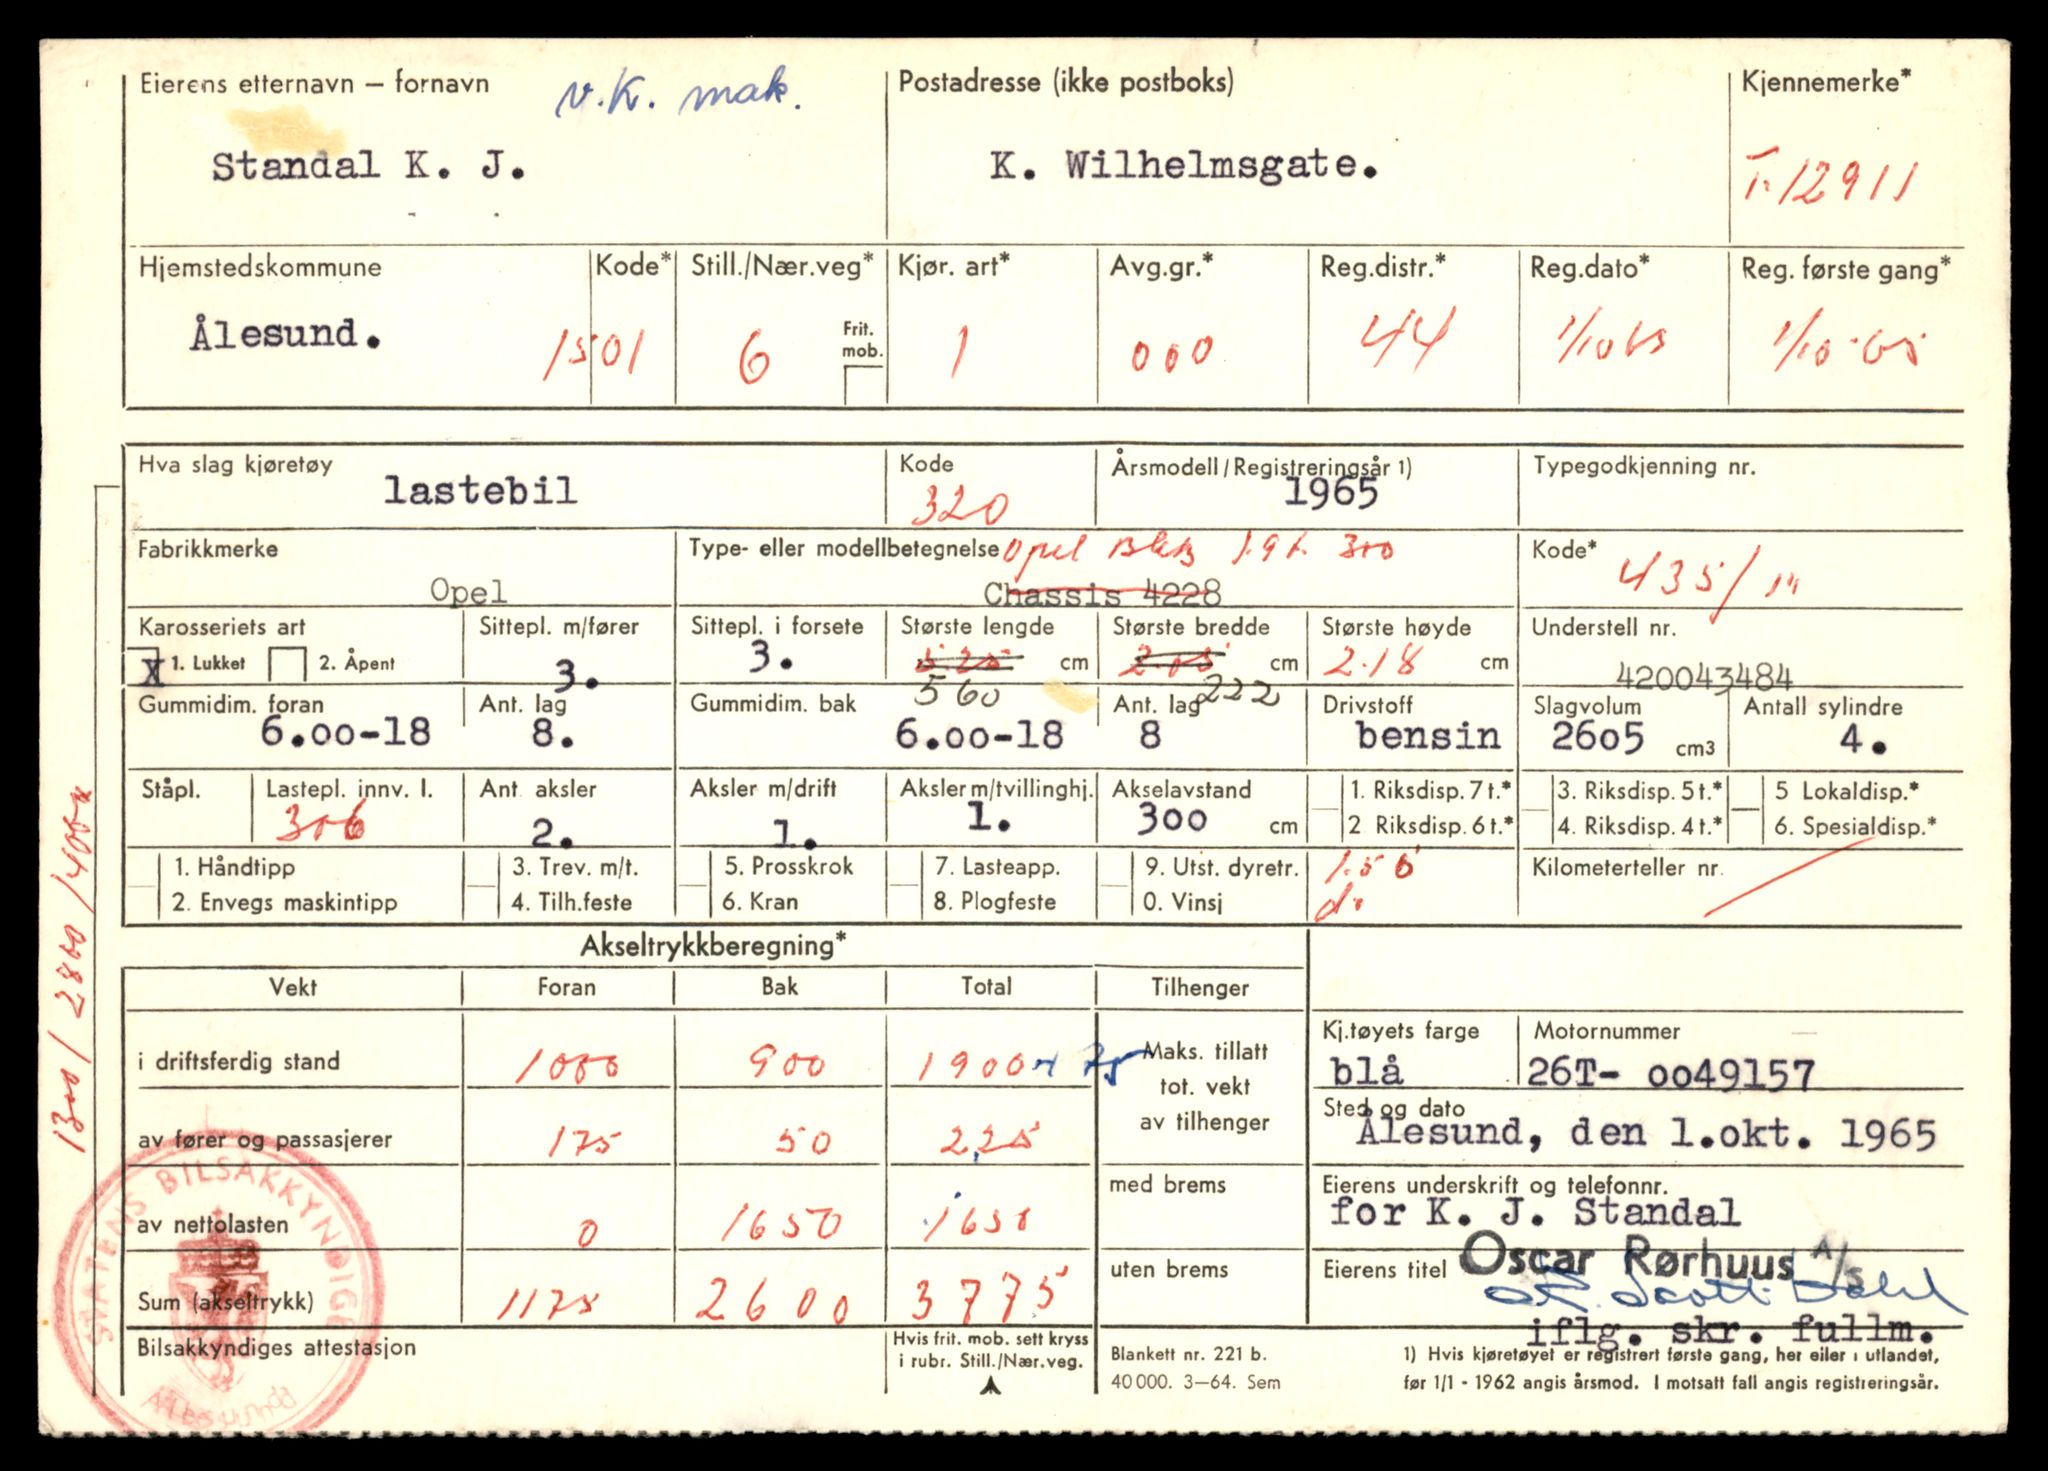 Eierens etternavn – fornavn
v.K. mak.
Postadresse (ikke postboks)
Kjennemerke*
Standal K. J.
K. Wilhelmsgate.
T.12911
Hjemstedskommune
Kode*
Still./Nær.veg*
Kjør. art*
Avg.gr.*
Reg.distr.*
Reg.dato*
Reg. første gang*
Ålesund.
1501
6
Frit. mob.
1
000
44
1/10 65
1/10-65
Hva slag kjøretøy
lastebil
Kode
320
Årsmodell/Registreringsår 1)
1965
Typegodkjenning nr.
Fabrikkmerke
Opel
Type- eller modellbetegnelse Opel Blitz 1.9 t. 300
Chassis 4228
Kode*
435/
Karosseriets art
X 1. Lukket 2. Åpent
Sittepl. m/fører
3.
Sittepl. i forsete
3.
Største lengde
525 cm
560
Største bredde
205 cm
222
Største høyde
2.18 cm
Understell nr.
420043484
Gummidim. foran
6.00-18
Ant. lag
8.
Gummidim. bak
6.00-18
Ant. lag
8
Drivstoff
bensin
Slagvolum
2605 cm3
Antall sylindre
4.
Ståpl.
Lastepl. innv. l.
306
Ant. aksler
2.
Aksler m/drift
1.
Aksler m/tvillinghj.
1.
Akselavstand
300 cm
1. Riksdisp. 7 t.*
2 Riksdisp. 6 t.*
3. Riksdisp. 5 t.*
4. Riksdisp. 4 t.*
5 Lokaldisp.*
6. Spesialdisp.*
1. Håndtipp
2. Envegs maskintipp
3. Trev. m/t.
4. Tilh.feste
5. Prosskrok
6. Kran
7. Lasteapp.
8. Plogfeste
9. Utst. dyretr.
0. Vinsj
1.56
d.
Kilometerteller nr.
1300 / 2800 / 4000
Akseltrykkberegning*
Vekt Foran Bak Total Tilhenger
i driftsferdig stand 1000 900 1900 + 75
av fører og passasjerer 175 50 225
av nettolasten 0 1650 1650
Sum (akseltrykk) 1175 2600 3775
Maks. tillatt
tot. vekt
av tilhenger
med brems
uten brems
Kj.tøyets farge
blå
Motornummer
26T- 0049157
Sted og dato
Ålesund, den 1.okt. 1965
Eierens underskrift og telefonnr.
for K. J. Standal
Eierens titel Oscar Rørhuus A/S
iflg. skr. fullm.
Bilsakkyndiges attestasjon
STATENS BILSAKKYNDIGE
Ålesund
Hvis frit. mob. sett kryss
i rubr. Still./Nær.veg.
Blankett nr. 221 b.
40 000. 3–64. Sem
1) Hvis kjøretøyet er registrert første gang, her eller i utlandet,
før 1/1 - 1962 angis årsmod. I motsatt fall angis registreringsår.